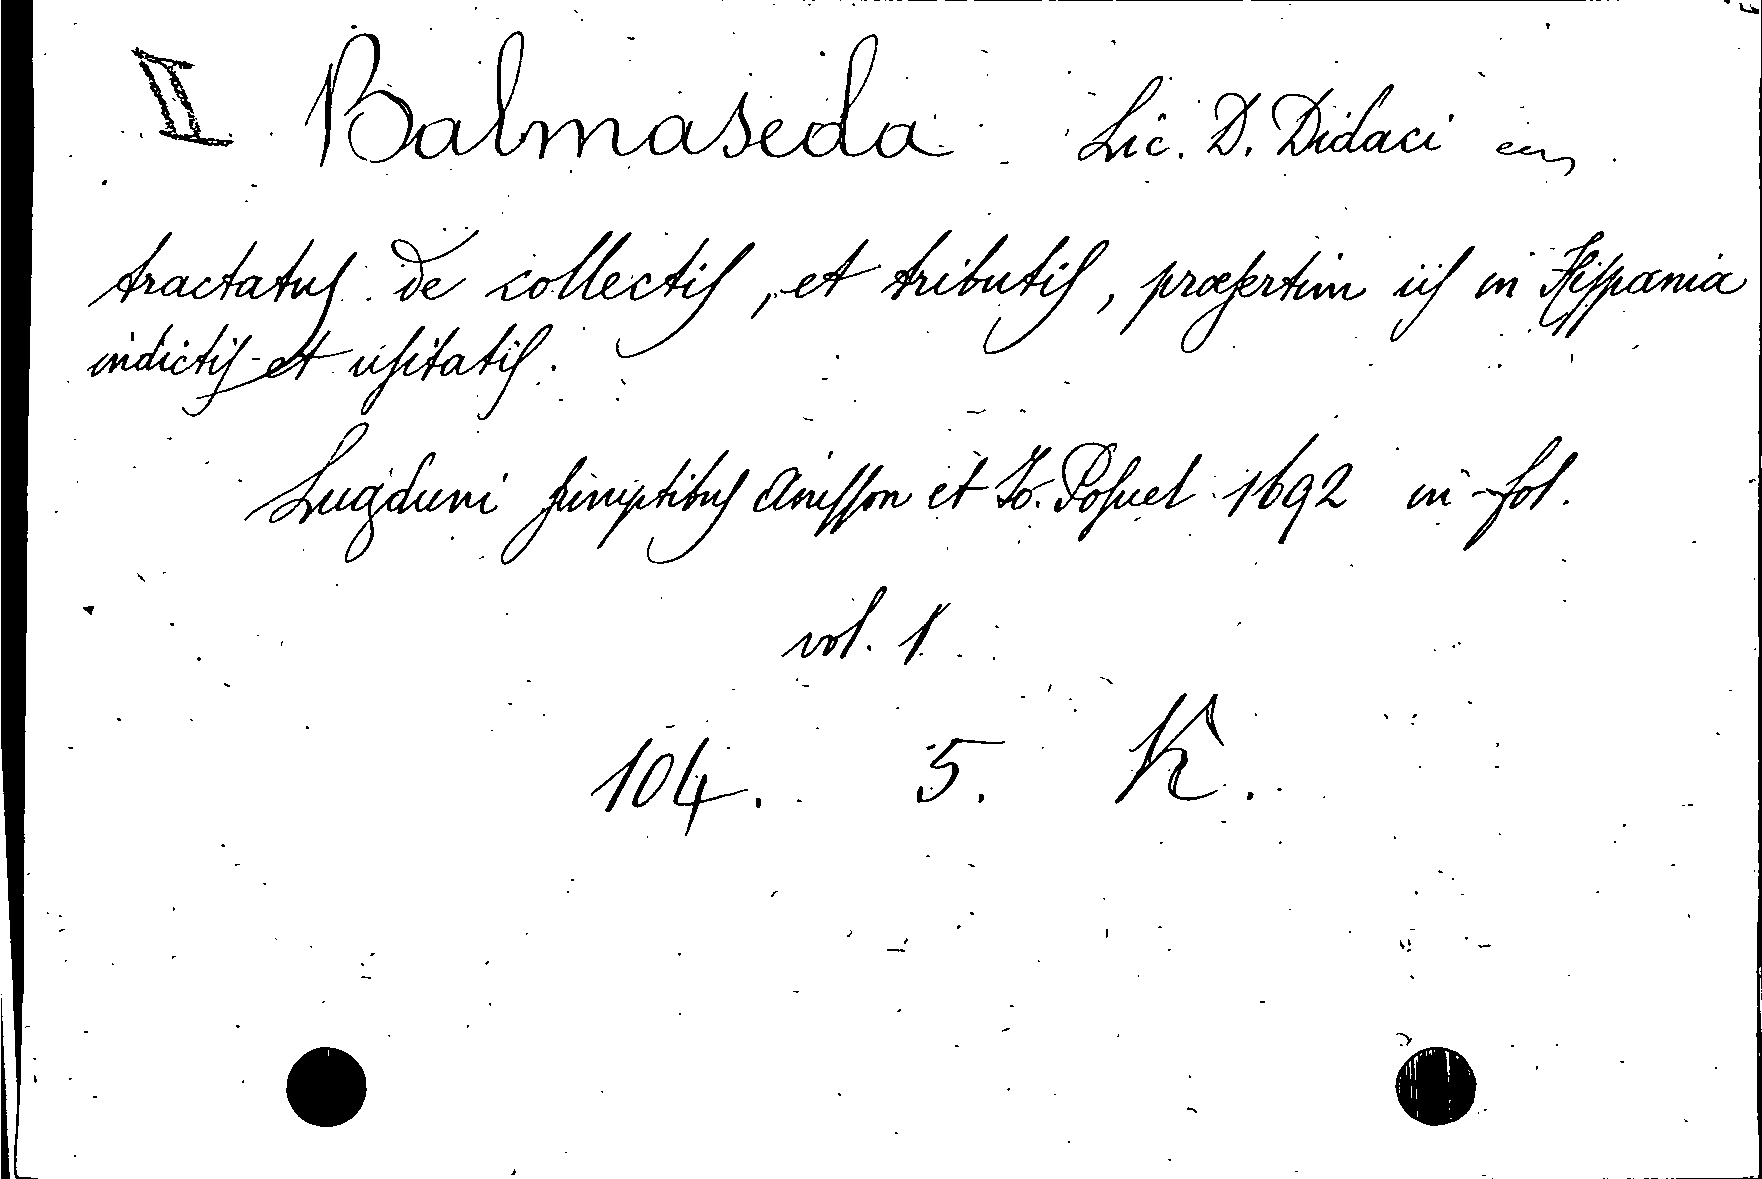 II Balmaseda Lic. D. Didaci
tractatus de collectis, et tributis, præsertim iis in Hispania
indictis et usitatis.
Lugduni sumptibus Anisson et Jo. Posuel 1692 in-fol.
vol. 1
104. 5. K.